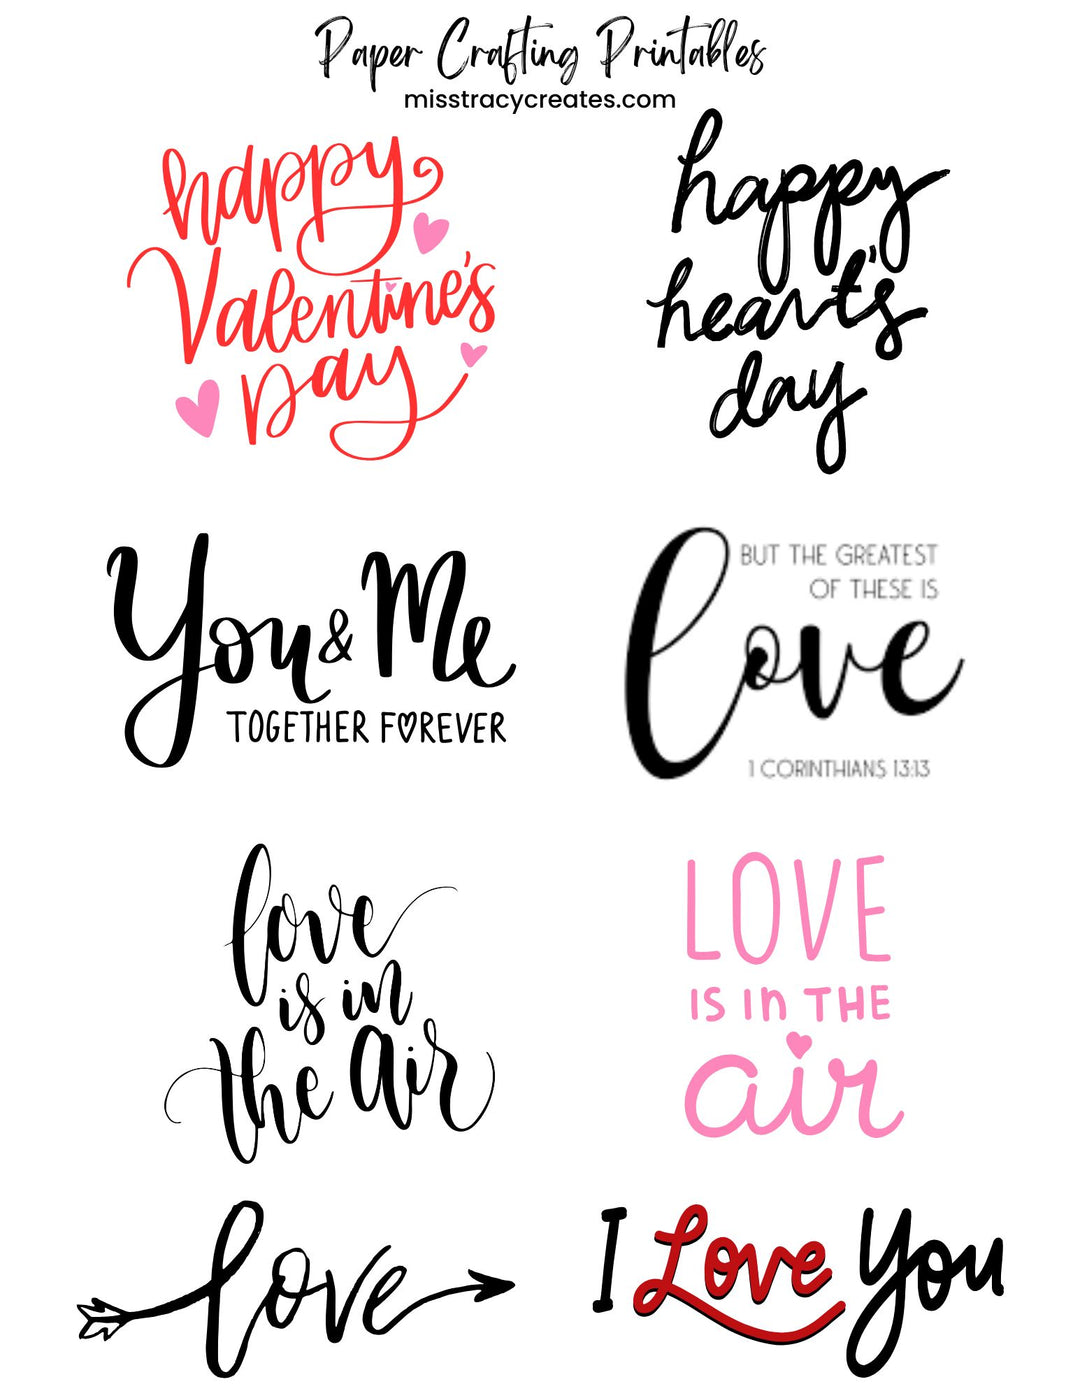 Paper Crafting Printables
misstracycreates.com
happy
Valentine's
Day
happy
heart's
day
You & Me
TOGETHER FOREVER
BUT THE GREATEST
OF THESE IS
Love
1 CORINTHIANS 13:13
love
is in
the Air
LOVE
IS In THE
air
love
I Love You